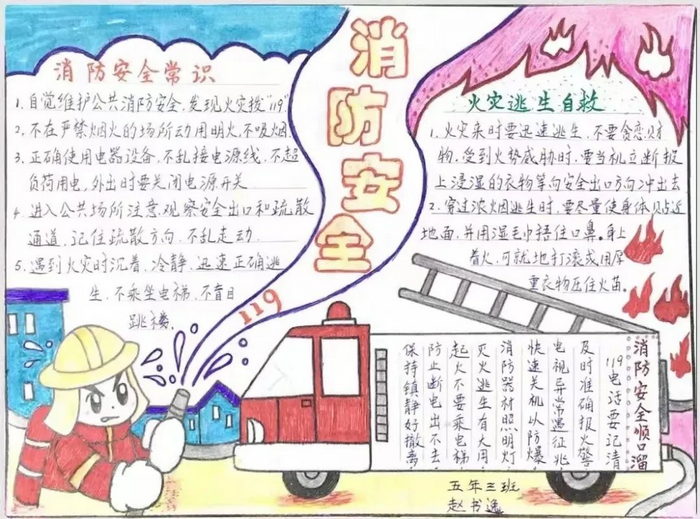 消防安全
119
消防安全常识
1.自觉维护公共消防安全,发现火灾拨"119"
2.不在严禁烟火的场所动用明火,不吸烟.
3.正确使用电器设备,不乱接电源线,不超
负荷用电,外出时要关闭电源开关
4.进入公共场所注意观察安全出口和疏散
通道,记住疏散方向,不乱走动.
5.遇到火灾时沉着、冷静,迅速正确逃
生,不乘坐电梯,不盲目
跳楼.
火灾逃生自救
1.火灾来时要迅速逃生,不要贪恋财
物,受到火势威胁时,要当机立断披
上浸湿的衣物等向安全出口方向冲出去
2.穿过浓烟逃生时,要尽量使身体贴近
地面,并用湿毛巾捂住口鼻.身上
着火,可就地打滚或用厚
重衣物压住火苗.
消防安全顺口溜
119电话要记清
及时准确报火警
电视异常遇征兆
快速关机以防爆
消防器材照明灯
灭火逃生有大用
起火不要乘电梯
防止断电出不去
保持镇静好撤离
五年三班
赵书逸